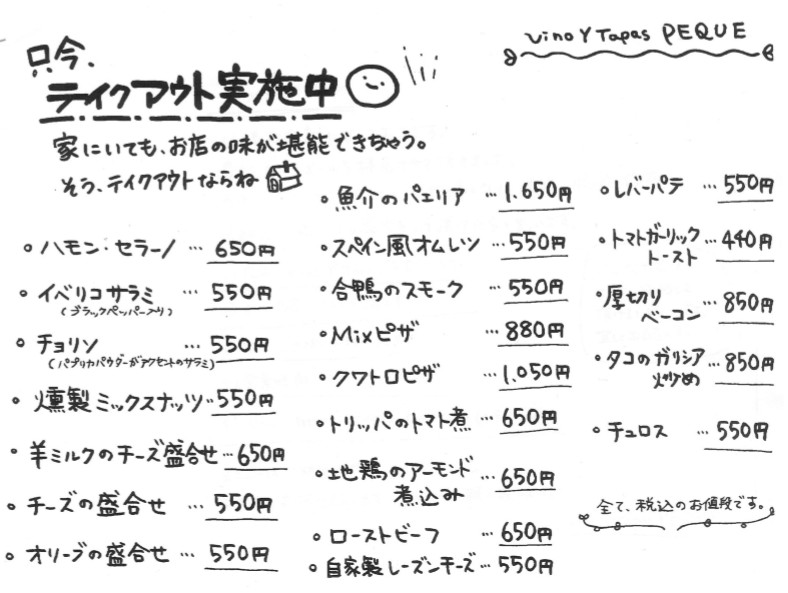 Vino Y Tapas PEQUE
只今、
テイクアウト実施中
家にいても、お店の味が堪能できちゃう。
そう、テイクアウトならね
・ハモン・セラーノ … 650円
・イベリコサラミ … 550円
(ブラックペッパー入り)
・チョリソ … 550円
(パプリカパウダーがアクセントのサラミ)
・燻製ミックスナッツ … 550円
・羊ミルクのチーズ盛合せ … 650円
・チーズの盛合せ … 550円
・オリーブの盛合せ … 550円
・魚介のパエリア … 1.650円
・スペイン風オムレツ … 550円
・合鴨のスモーク … 550円
・Mixピザ … 880円
・クワトロピザ … 1.050円
・トリッパのトマト煮 … 650円
・地鶏のアーモンド
煮込み … 650円
・ローストビーフ … 650円
・自家製レーズンチーズ … 550円
・レバーパテ … 550円
・トマトガーリック
トースト … 440円
・厚切り
ベーコン … 850円
・タコのガリシア
炒め … 850円
・チュロス … 550円
全て、税込のお値段です。